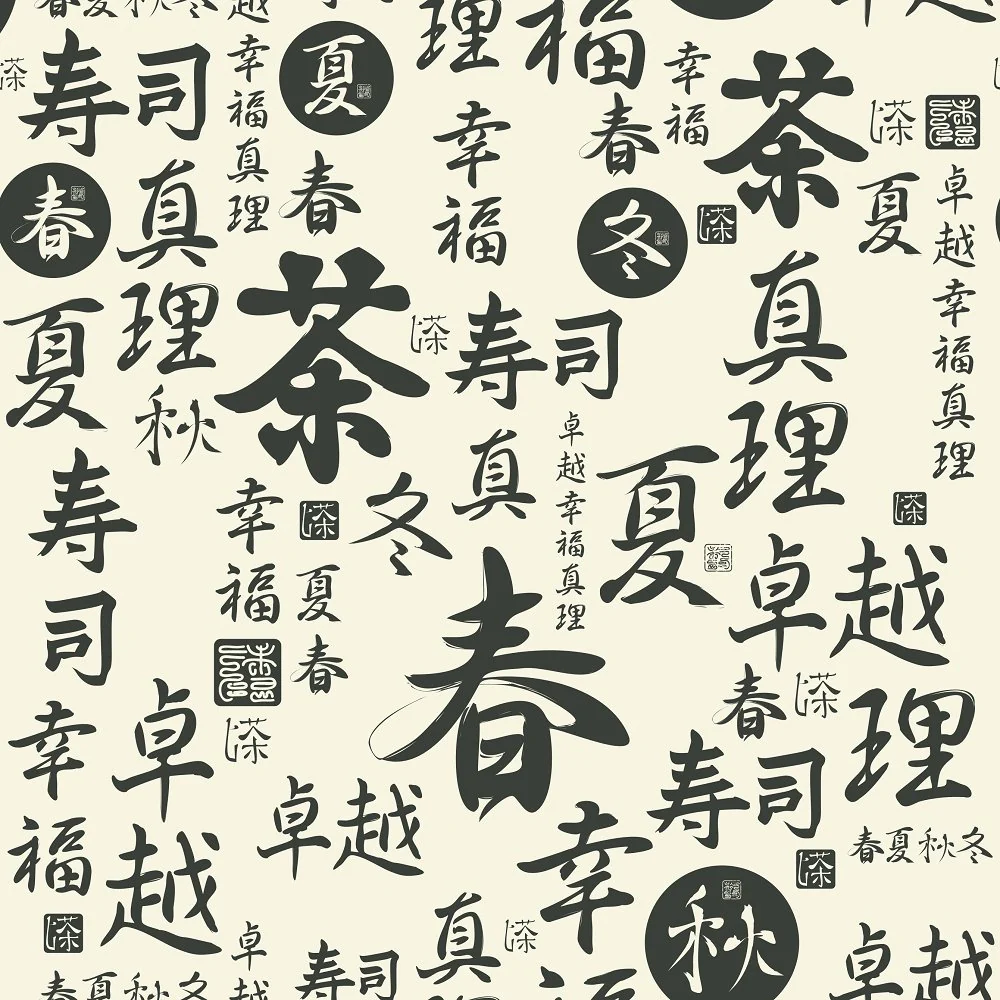 春夏秋冬
越
理
福
卓越
寿司
幸福真理
夏
幸福
春
幸福
茶
夏
卓越幸福真理
春
真理
春
冬
真理
夏
茶
寿司
秋
真
卓越幸福真理
夏
寿司
幸福
冬
夏
春
春
卓越
春
理
幸福
卓越
卓越
寿司
幸
春夏秋冬
秋
真理
卓
寿司
卓越
春夏秋冬